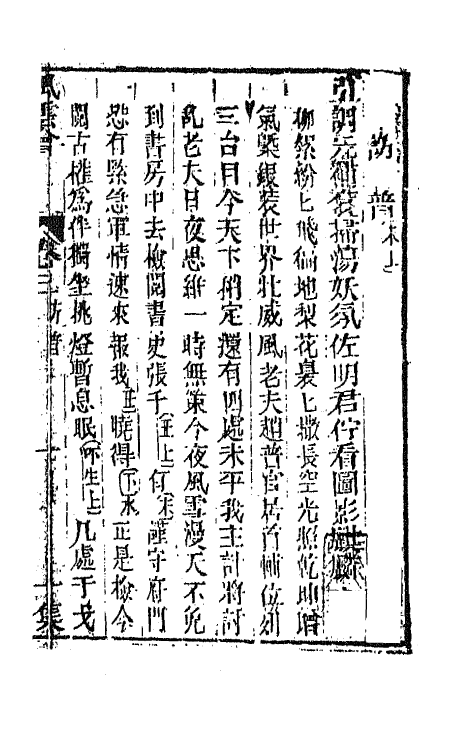 訪普 末上
引調元補衮掃蕩妖氛佐明君佇看圖影
柳絮紛匕飛徧地梨花裊匕撒長空光照乾坤增
氣槩銀裝世界壯威風老夫趙普官居首輔位列
三台目今天下稍定還有四處未平我主計將討
亂老夫日夜思維一時無策今夜風雪漫天不免
到書房中去檢閱書史張千(丑上)有(末)謹守府門
恐有緊急軍情速來報我(丑)曉得(下末)正是檢今
閱古權爲作獨坐挑燈暫息眠(小生上)几處干戈
風雲會 卷三 訪普 集